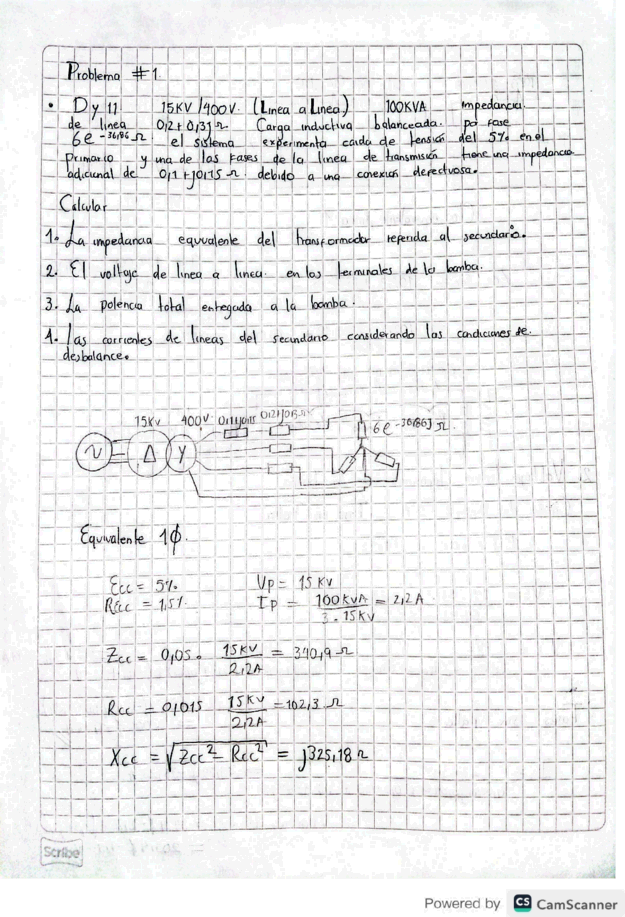 Problema #1
• Dy11 15KV/400V. (Linea a Linea) 100KVA Impedancia
de linea 0,2+0,3j Ω Carga inductiva balanceada por fase
6e^-36,86 Ω el sistema experimenta caida de tensión del 5% en el
primario y una de las fases de la linea de transmisión tiene una impedancia
adicional de 0,1+j0,15 Ω debido a una conexión defectuosa.
Calcular
1. La impedancia equivalente del transformador referida al secundario.
2. El voltaje de linea a linea en los terminales de la bomba.
3. La potencia total entregada a la bomba.
4. Las corrientes de lineas del secundario considerando las condiciones de
desbalance.
15Kv 400V 0,1+j0,15
Δ Y 6e^-36,86j Ω
Equivalente 1ϕ.
Ecc = 5% Vp = 15 KV
Rcc = 1,5% Ip = 100KVA / 3 · 15KV = 2,2A
Zcc = 0,05 · 15KV / 2,2A = 340,9 Ω
Rcc = 0,015 15KV / 2,2A = 102,3 Ω
Xcc = √Zcc² - Rcc² = j325,18 Ω
Scribe
Powered by CS CamScanner